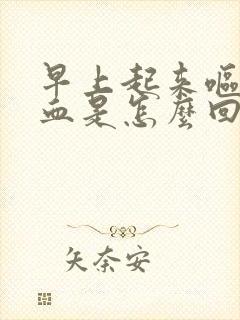 早上起来嘔
血是怎麼回
矢奈安